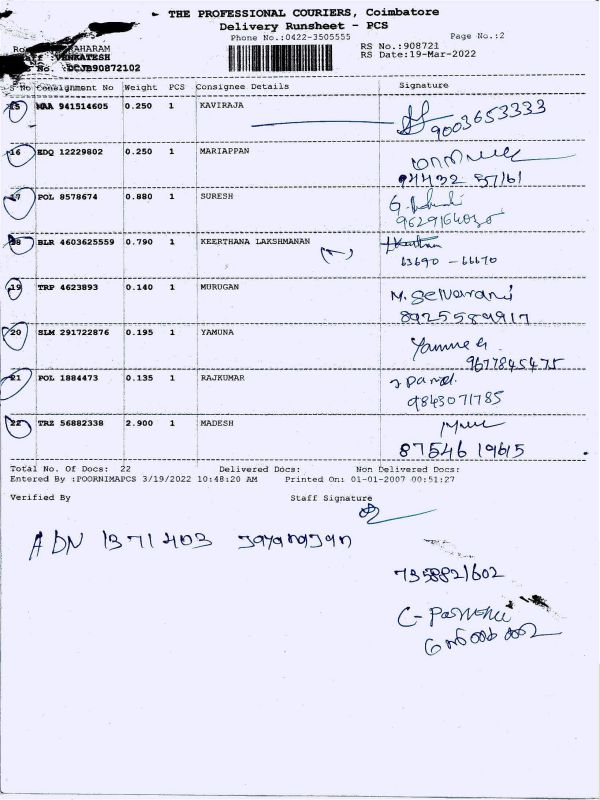 THE PROFESSIONAL COURIERS, Coimbatore
Delivery Runsheet - PCS
Phone No.:0422-3505555 Page No.:2
RS No.:908721
RAHARAM RS Date:19-Mar-2022
:VENKATESH
No. :DCJB90872102
S No Consignment No Weight PCS Consignee Details Signature
15 MAA 941514605 0.250 1 KAVIRAJA
9003653333
16 EDQ 12229802 0.250 1 MARIAPPAN
94432 57161
17 POL 8578674 0.880 1 SURESH
18 BLR 4603625559 0.790 1 KEERTHANA LAKSHMANAN
63690 - 66670
19 TRP 4623893 0.140 1 MURUGAN M. Selvarani
8925589917
20 SLM 291722876 0.195 1 YAMUNA
9677845475
21 POL 1884473 0.135 1 RAJKUMAR
9843071785
22 TRZ 56882338 2.900 1 MADESH
87546 19615
Total No. Of Docs: 22 Delivered Docs: Non Delivered Docs:
Entered By :POORNIMAPCS 3/19/2022 10:48:20 AM Printed On: 01-01-2007 00:51:27
Verified By Staff Signature
ADN 1371403
7358821602